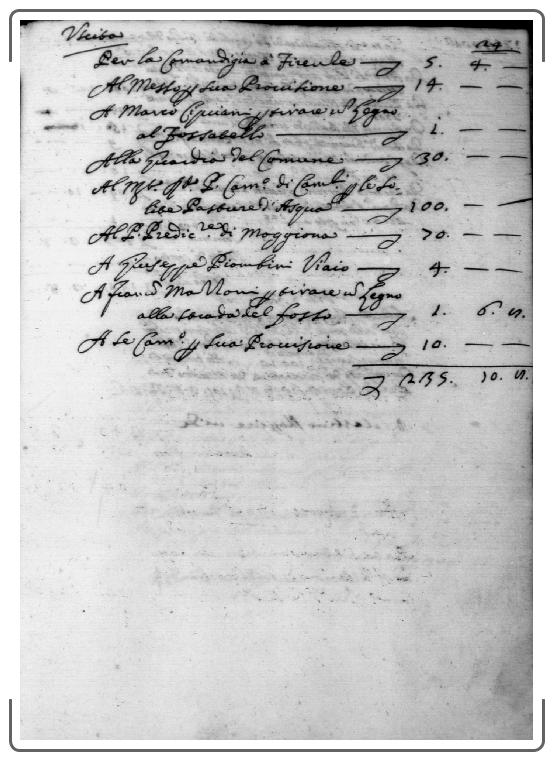 Uscita 29
Per la Comandigia à Firenze — 5. 4. —
Al Messo p sua Provisione — 14. — —
A Marco Cipriani p tirare un Legno
al Fossatello — 1. — —
Alla Guardia del Comune — 30. — —
Al P. Cam.º di Camal. p le So-
lite Pasture d'Asqua — 100. — —
Al P. Predic.re di Moggiona — 70. — —
A Giuseppe Piombini Viaio — 4. — —
A Franc.º Ma Noni p tirare un Legno
alla strada del fosso — 1. 6. 8.
A Se Cam.º p sua Provisione — 10. — —
235. 10. 8.